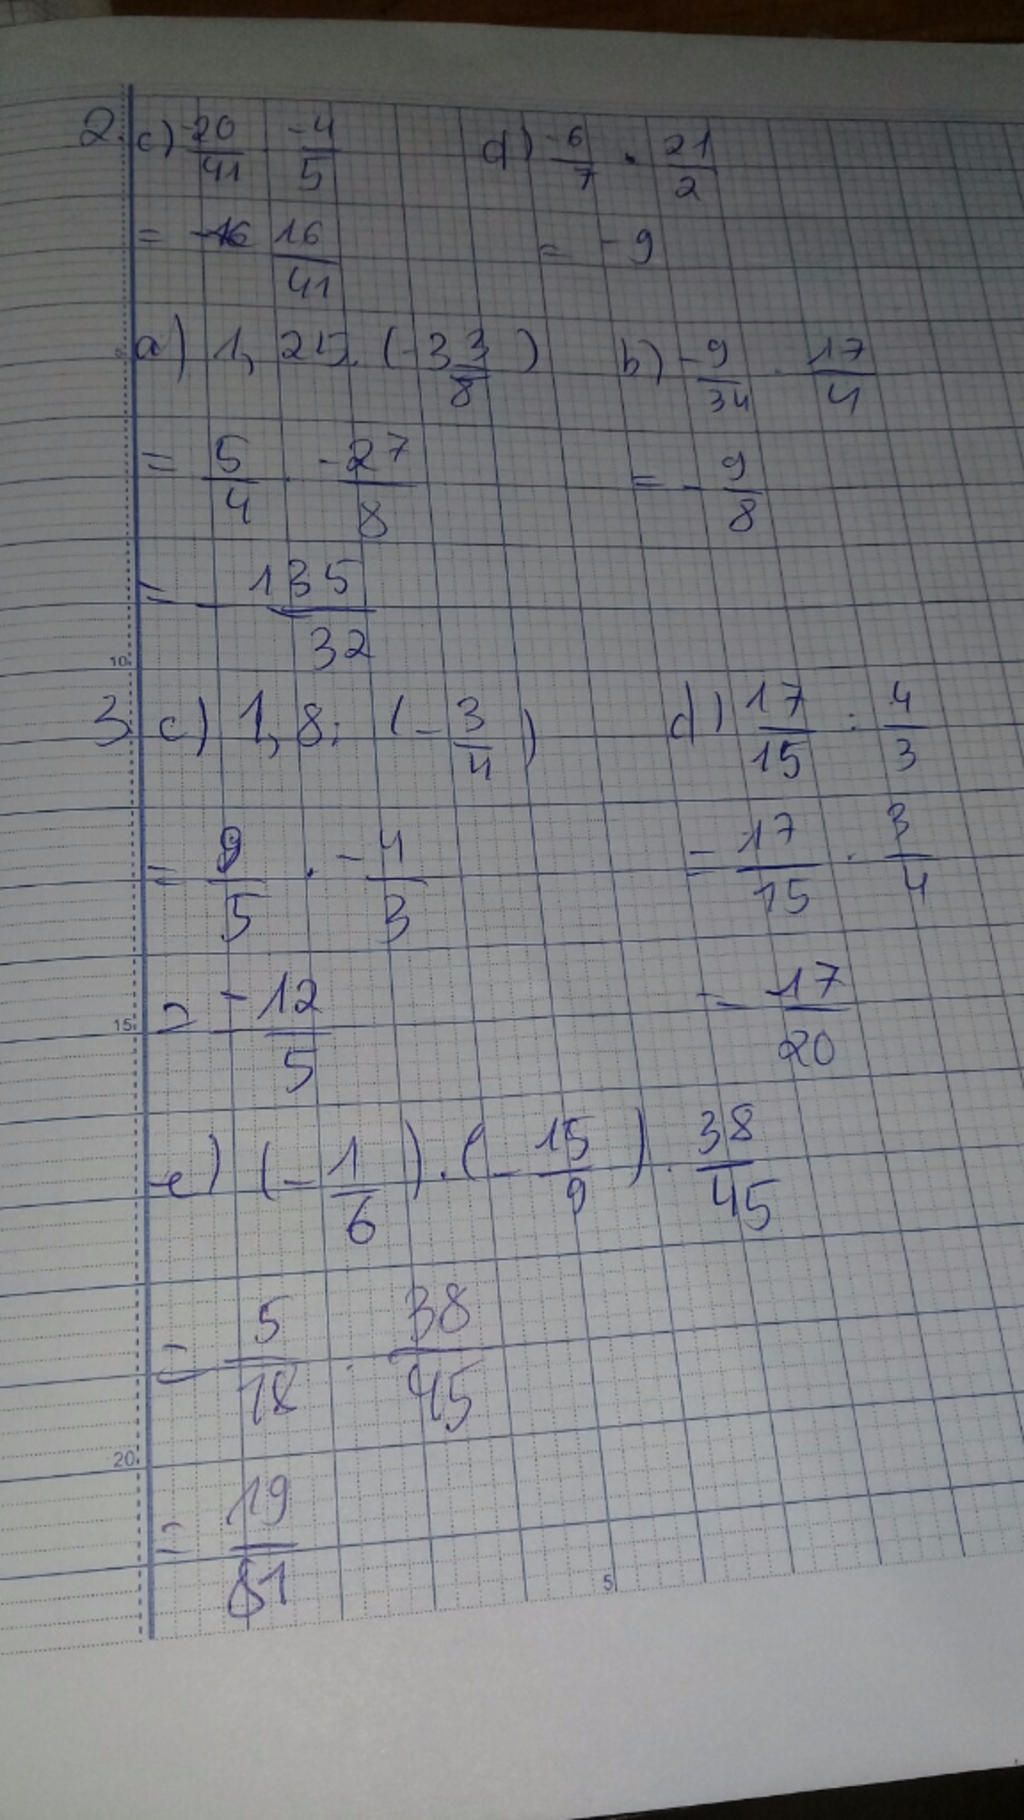 2. c) -20/41 · -4/5 d) -6/7 · 21/2
= 16/41 = -9
a) 1,25 . (-3 3/8) b) -9/34 · 17/4
= 5/4 · -27/8 = - 9/8
= - 135/32
3. c) 1,8 : (- 3/4) d) 17/15 : 4/3
= 9/5 . -4/3 = 17/15 . 3/4
= -12/5 = 17/20
e) (- 1/6) . (- 15/9) . 38/45
= 5/18 . 38/45
= 19/81
10
15
20
5